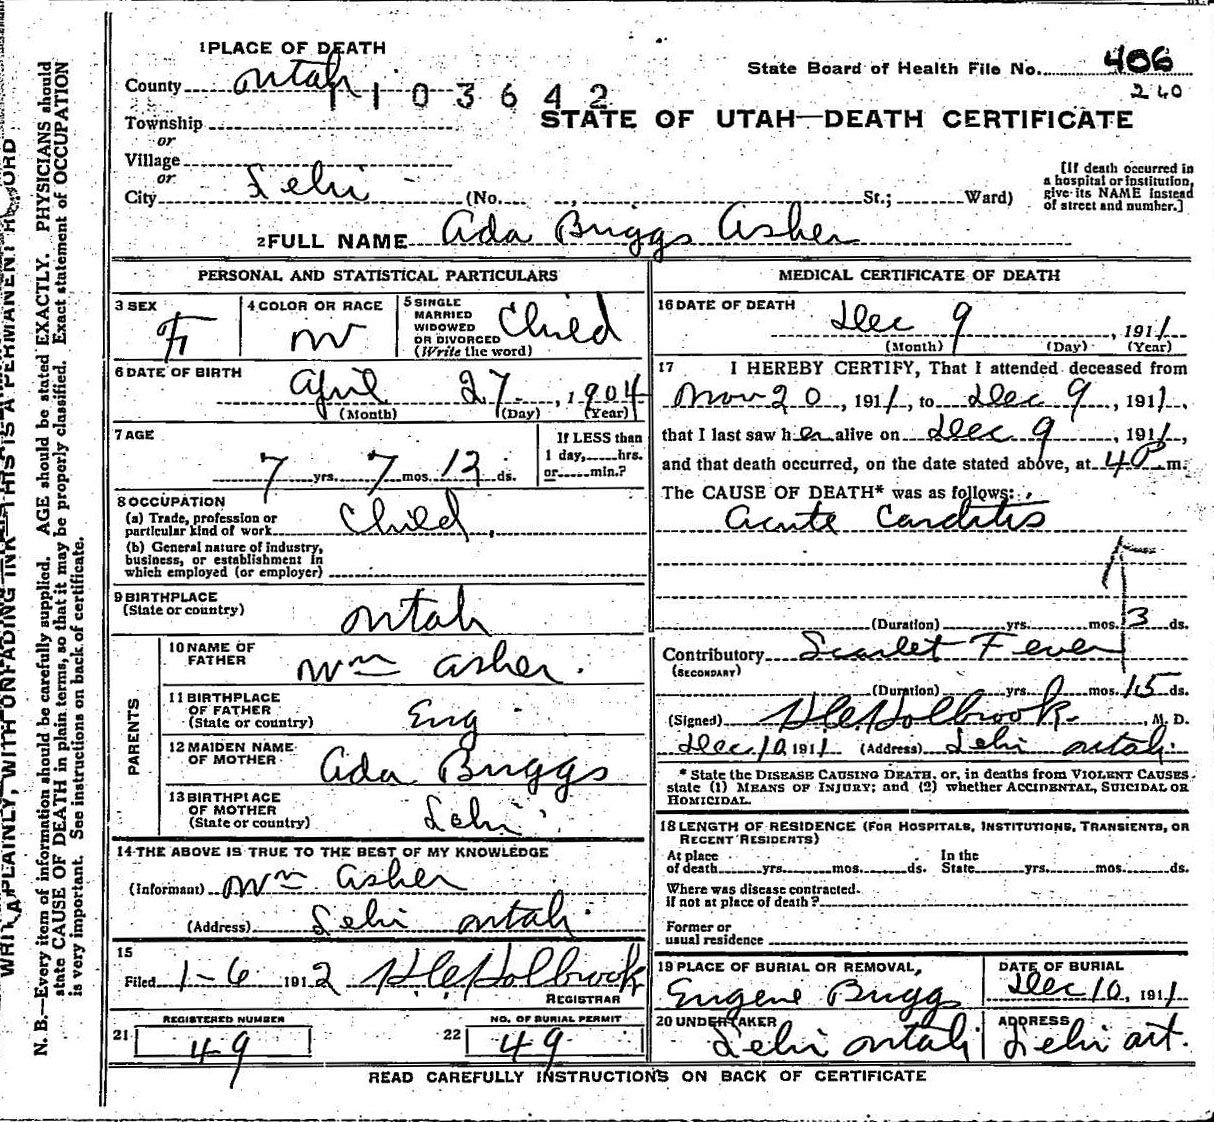 WRITE PLAINLY, WITH UNFADING INK—THIS IS A PERMANENT RECORD
N. B.—Every item of information should be carefully supplied. AGE should be stated EXACTLY. PHYSICIANS should
state CAUSE OF DEATH in plain terms, so that it may be properly classified. Exact statement of OCCUPATION
is very important. See instructions on back of certificate.
1 PLACE OF DEATH
County Utah
1103642
Township
or
Village
or
City Lehi (No. , St.; Ward)
State Board of Health File No. 406
240
STATE OF UTAH—DEATH CERTIFICATE
[If death occurred in
a hospital or institution,
give its NAME instead
of street and number.]
2 FULL NAME Ada Briggs Asher
PERSONAL AND STATISTICAL PARTICULARS
3 SEX F
4 COLOR OR RACE W
5 SINGLE
MARRIED
WIDOWED
OR DIVORCED
(Write the word) Child
6 DATE OF BIRTH
April 27, 1904
(Month) (Day) (Year)
7 AGE
7 yrs. 7 mos. 12 ds.
If LESS than
1 day, hrs.
or min.?
8 OCCUPATION
(a) Trade, profession or
particular kind of work Child
(b) General nature of industry,
business, or establishment in
which employed (or employer)
9 BIRTHPLACE
(State or country) Utah
PARENTS
10 NAME OF
FATHER Wm Asher.
11 BIRTHPLACE
OF FATHER
(State or country) Eng
12 MAIDEN NAME
OF MOTHER Ada Briggs
13 BIRTHPLACE
OF MOTHER
(State or country) Lehi
14 THE ABOVE IS TRUE TO THE BEST OF MY KNOWLEDGE
(Informant) Wm Asher
(Address) Lehi Utah
15
Filed 1-6 1912 HCHolbrook
REGISTRAR
REGISTERED NUMBER
21 49
NO. OF BURIAL PERMIT
22 49
MEDICAL CERTIFICATE OF DEATH
16 DATE OF DEATH
Dec 9, 1911
(Month) (Day) (Year)
17 I HEREBY CERTIFY, That I attended deceased from
Nov 20, 1911, to Dec 9, 1911,
that I last saw her alive on Dec 9, 1911,
and that death occurred, on the date stated above, at 4P m.
The CAUSE OF DEATH* was as follows:
Acute Carditis
(Duration) yrs. mos. 3 ds.
Contributory Scarlet Fever
(SECONDARY)
(Duration) yrs. 0 mos. 15 ds.
(Signed) HCHolbrook, M. D.
Dec 10, 1911 (Address) Lehi Utah.
* State the DISEASE CAUSING DEATH, or, in deaths from VIOLENT CAUSES,
state (1) MEANS OF INJURY; and (2) whether ACCIDENTAL, SUICIDAL OR
HOMICIDAL.
18 LENGTH OF RESIDENCE (FOR HOSPITALS, INSTITUTIONS, TRANSIENTS, OR
RECENT RESIDENTS)
At place
of death yrs. mos. ds.
In the
State yrs. mos. ds.
Where was disease contracted.
if not at place of death?
Former or
usual residence
19 PLACE OF BURIAL OR REMOVAL,
Eugene Briggs
DATE OF BURIAL
Dec 10, 1911
20 UNDERTAKER
Lehi Utah
ADDRESS
Lehi Ut.
READ CAREFULLY INSTRUCTIONS ON BACK OF CERTIFICATE